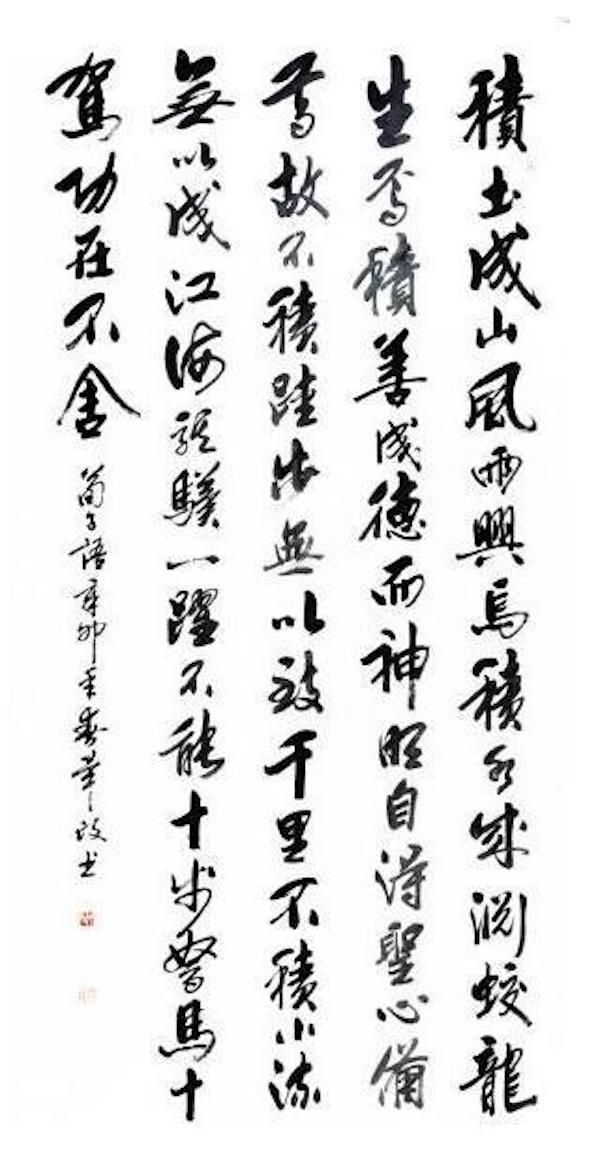 積土成山風雨興焉積水成淵蛟龍
生焉積善成德而神明自得聖心備
焉故不積跬步無以致千里不積小流
無以成江海騏驥一躍不能十步駑馬十
駕功在不舍
荀子語辛卯季春華書